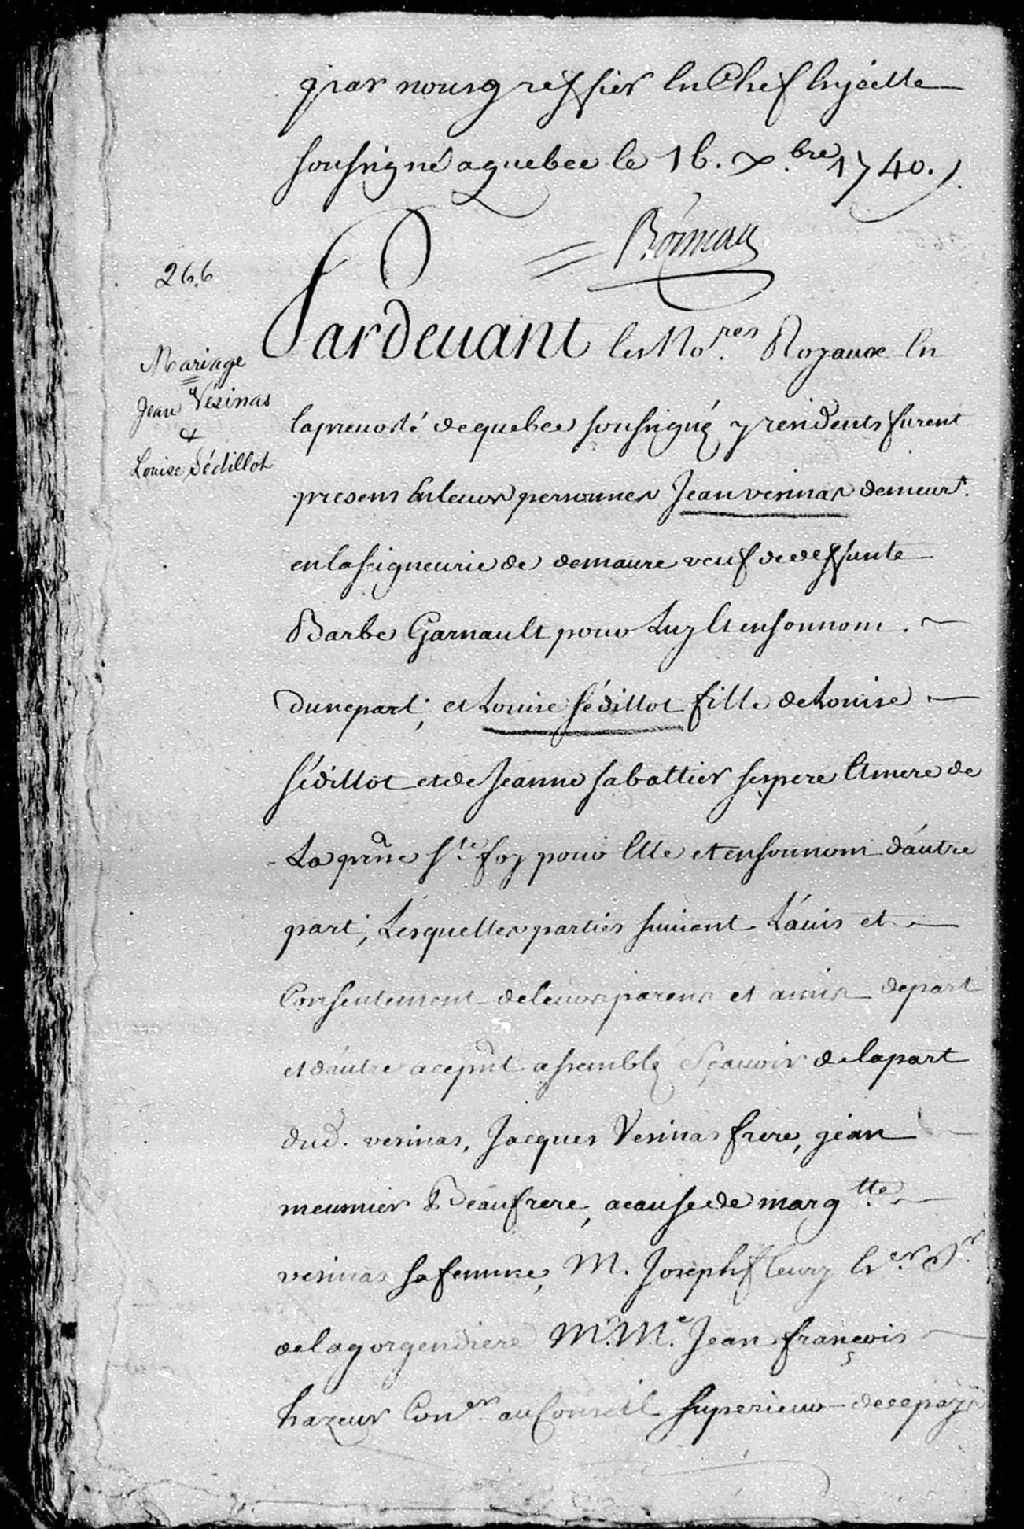 par nous greffier En Chef En jcelle
soussigné a quebec le 16. xbre 1740.
Boisseau
266
Mariage
Jean Vésinas
&
Louise Sédillot
Pardeuant les Nores Royaux En
la preuosté de quebec soussignéz y residents furent
presens En leurs personnes Jean vesinas demeurt.
en la seigneurie de demaure veuf de deffunte
Barbe Garnault pour Luy Et en son nom.
d'une part; et Louise sédillot fille de Louise
sédillot et de Jeanne sabattier ses pere Et mere de
La prsse Ste foy pour Elle et en son nom d'autre
part; Lesquelles parties suiuant L'auis et
Consentement de leurs parens et amis de part
et d'autre a ce prnt assembléz Sçauoir de la part
dud. vesinas, Jacques Vesinas frere, jean
meusnier Beaufrere, a cause de margtte
vesinas sa femme, M. Joseph fleury Er Sr
de la gorgendiere Mr. Me. Jean françois
hazeur Coner. au Conseil superieur de ce pays